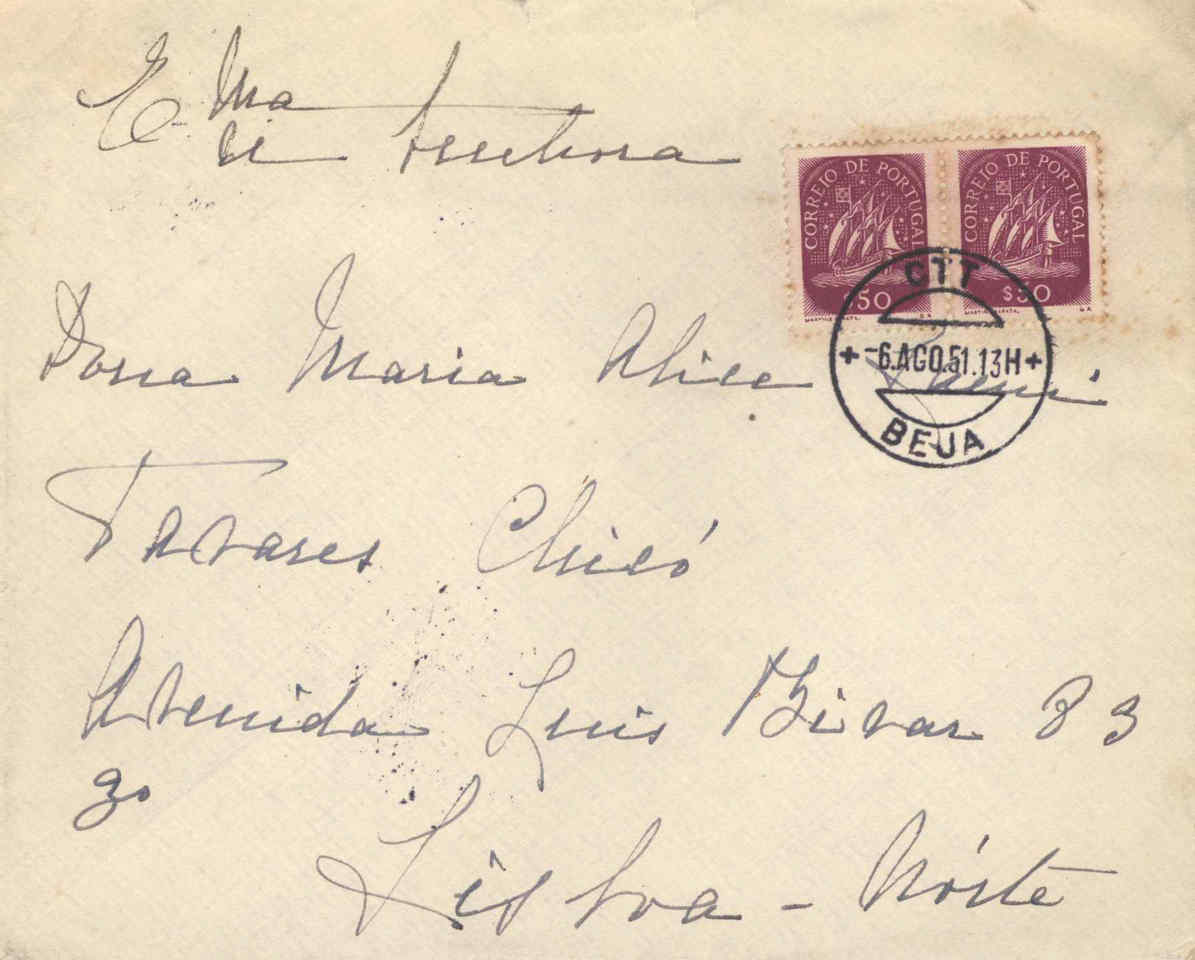 E. Ma
Senhora
CORREIO DE PORTUGAL
CORREIO DE PORTUGAL
$50
$50
CTT
-6.AGO.51.13H
BEJA
Dona Maria Alice
Tavares Chicó
Avenida Luis Bivar 83
3º
Lisboa - Nórte